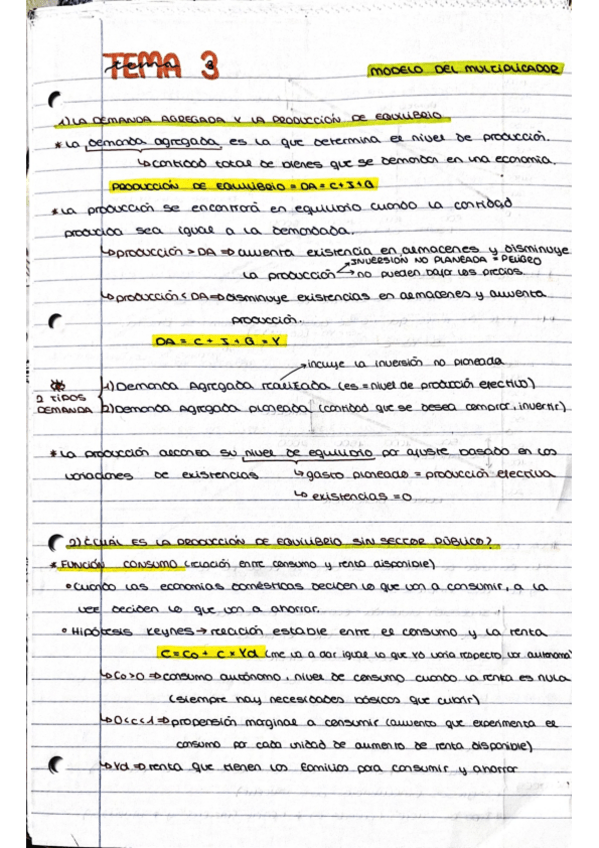 TEMA 3
tema 3
MODELO DEL MULTIPLICADOR
1) LA DEMANDA AGREGADA Y LA PRODUCCIÓN DE EQUILIBRIO
* La demanda agregada es la que determina el nivel de producción.
↳ cantidad total de bienes que se demandan en una economía.
PRODUCCIÓN DE EQUILIBRIO = DA = C + I + G
* La producción se encontrará en equilibrio cuando la cantidad
producida sea igual a la demandada.
↳ producción > DA ⇒ aumenta existencia en almacenes y disminuye
la producción → INVERSIÓN NO PLANEADA = PELIGRO
→ no pueden bajar los precios.
↳ producción < DA ⇒ disminuye existencias en almacenes y aumenta
producción.
DA = C + I + G = Y
→ incluye la inversión no planeada
2 TIPOS
DEMANDA
1) Demanda Agregada realizada (es = nivel de producción efectivo)
2) Demanda Agregada planeada (cantidad que se desea comprar, invertir)
* La producción alcanza su nivel de equilibrio por ajuste basado en las
variaciones de existencias ↳ gasto planeado = producción efectiva
↳ existencias = 0
2) ¿CUÁL ES LA PRODUCCIÓN DE EQUILIBRIO SIN SECTOR PÚBLICO?
* FUNCIÓN CONSUMO (relación entre consumo y renta disponible)
• Cuando las economías domésticas deciden lo que van a consumir, a la
vez deciden lo que van a ahorrar.
• Hipótesis Keynes → relación estable entre el consumo y la renta
C = Co + c × Yd (me va a dar igual lo que Yd varía respecto var autónoma)
↳ Co > 0 ⇒ consumo autónomo, nivel de consumo cuando la renta es nula
(siempre hay necesidades básicas que cubrir)
↳ 0 < c < 1 ⇒ propensión marginal a consumir (aumento que experimenta el
consumo por cada unidad de aumento de renta disponible)
↳ Yd ⇒ renta que tienen las familias para consumir y ahorrar